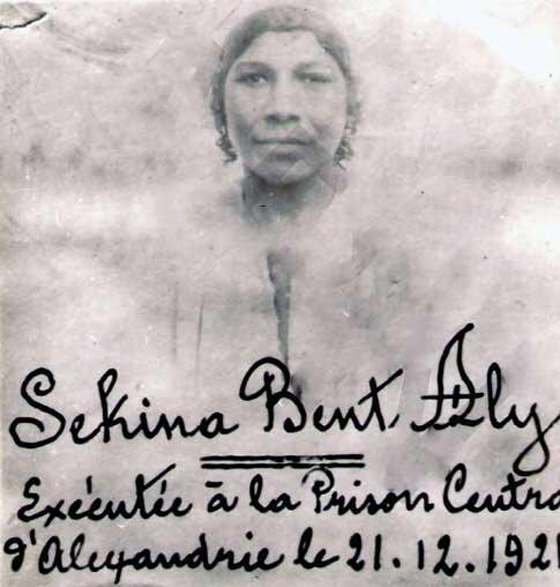 Sekina Bent Aly
Exécutée à la Prison Centra
d'Alexandrie le 21.12.192